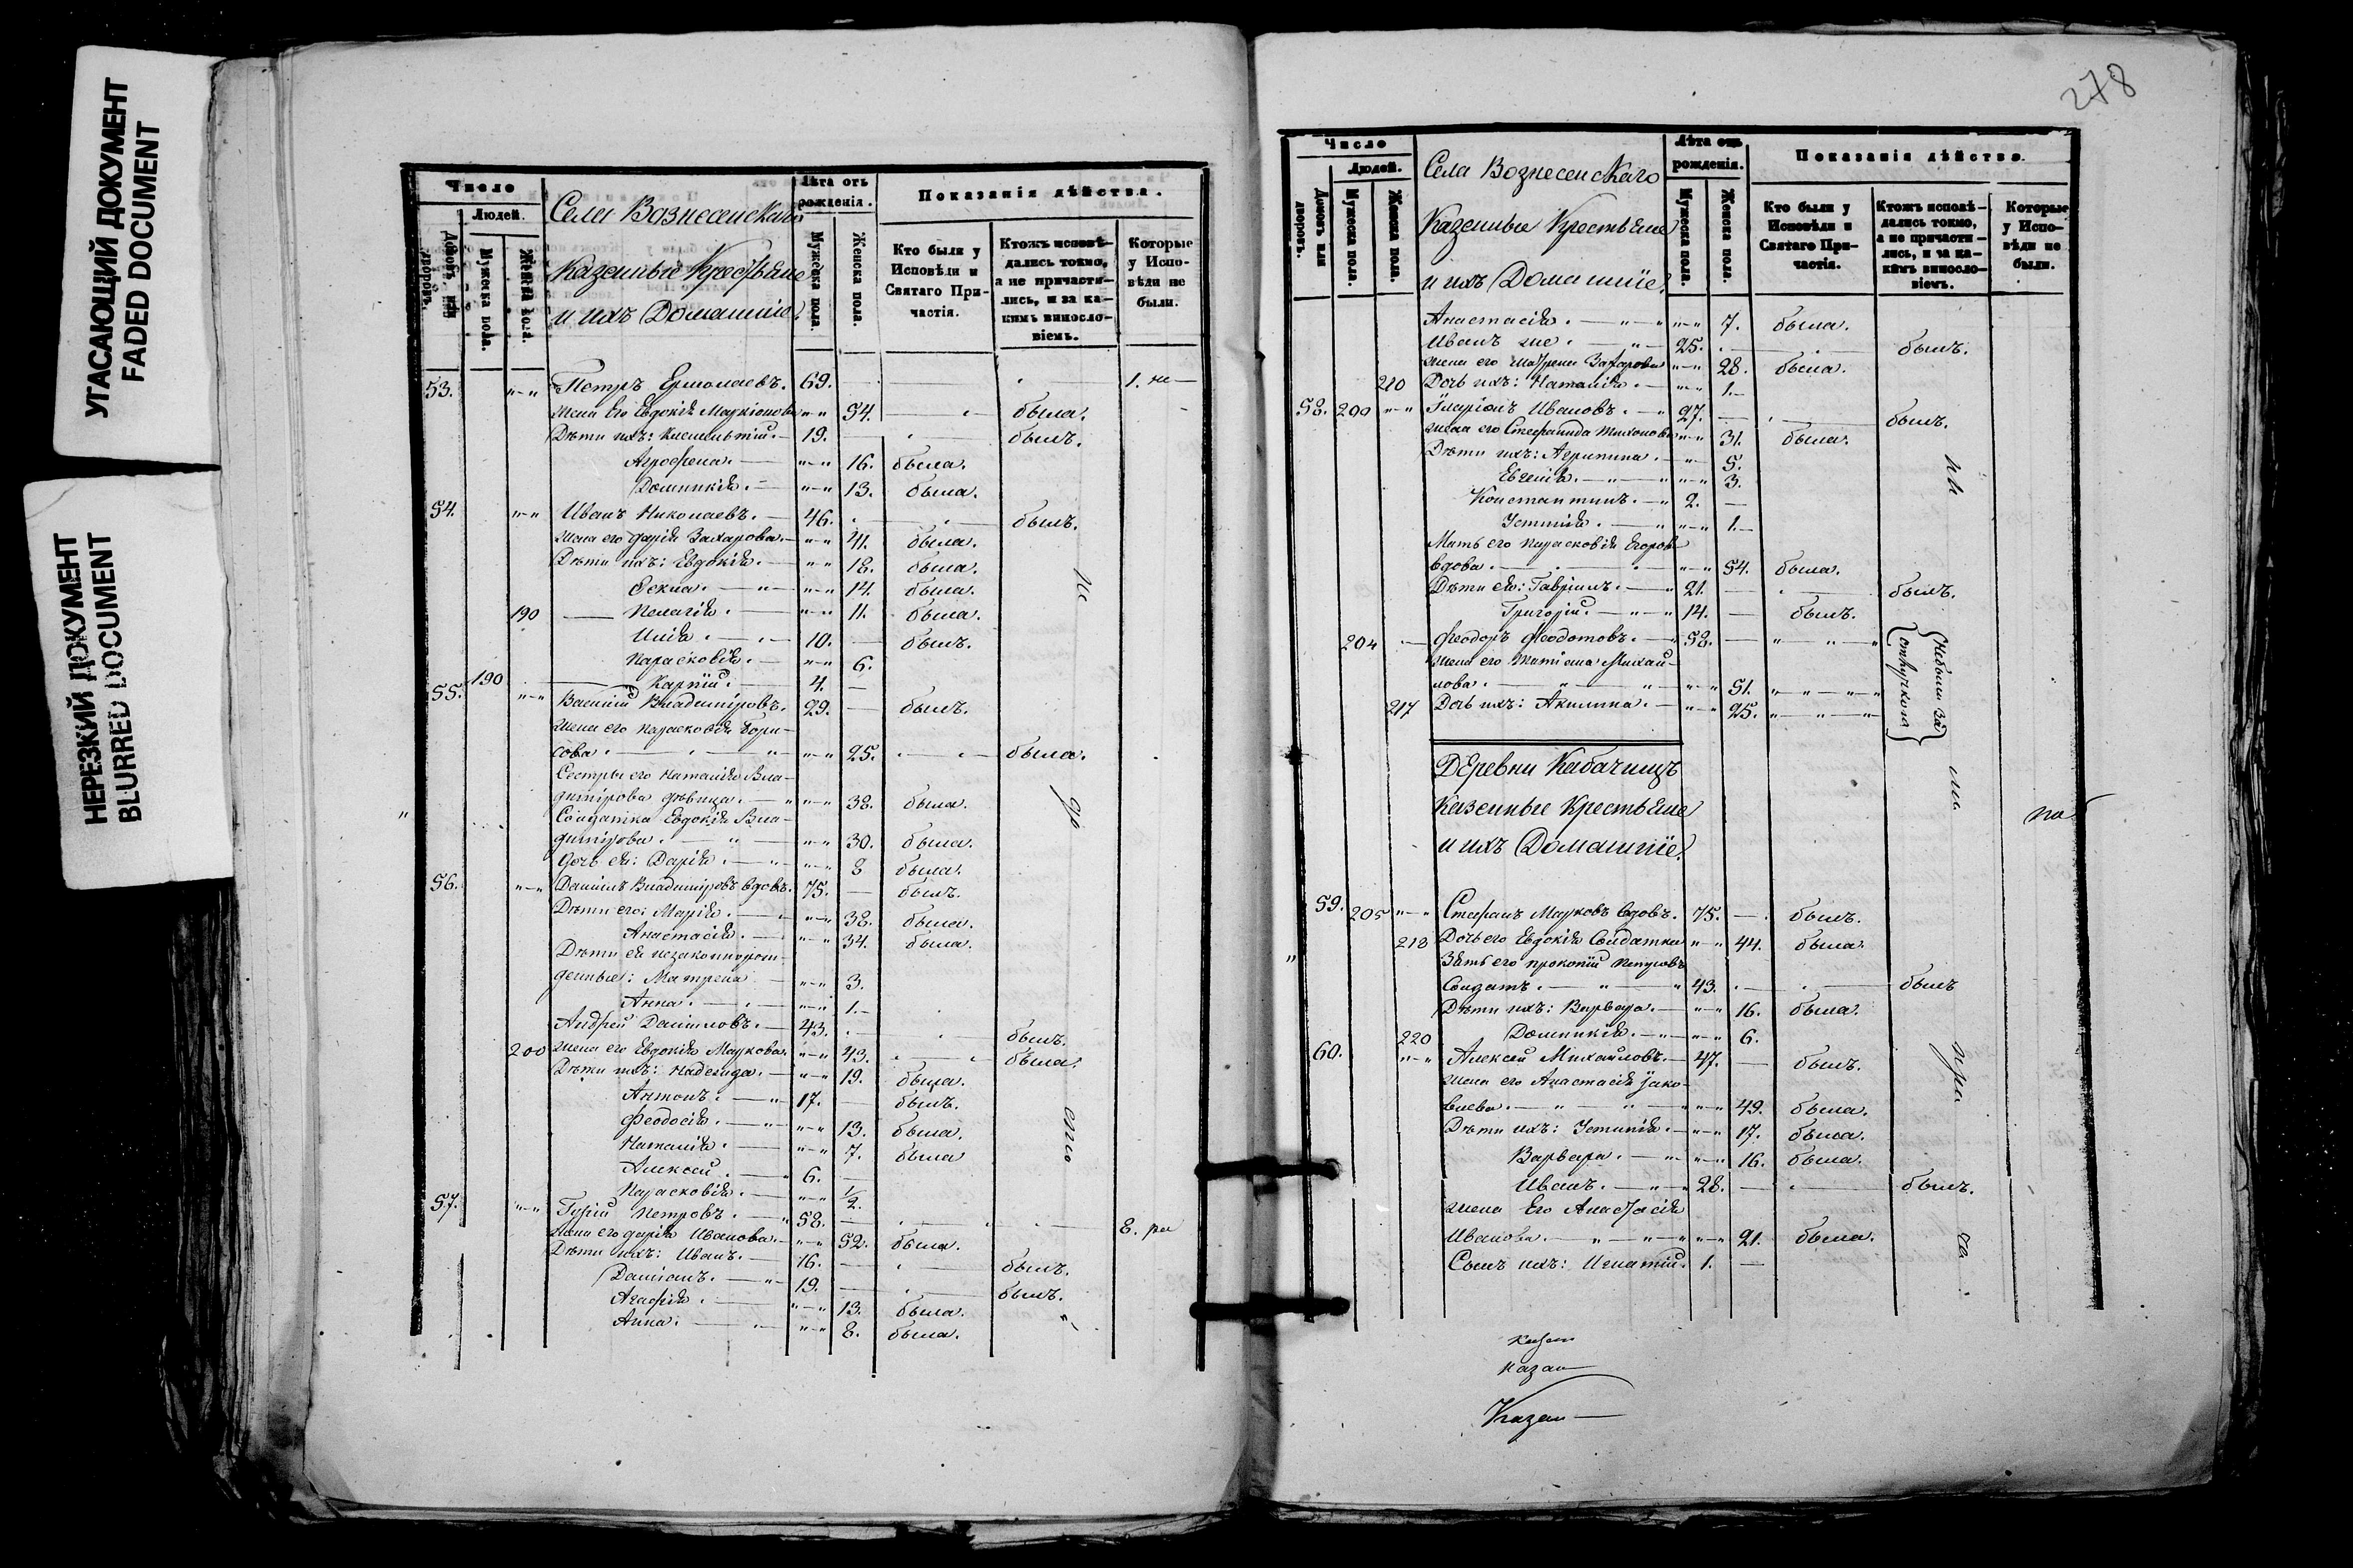 УГАСАЮЩИЙ ДОКУМЕНТ
FADED DOCUMENT
НЕРЕЗКИЙ ДОКУМЕНТ
BLURRED DOCUMENT
Число
Людей.
Домовъ или дворовъ.
Мужеска пола.
Женска пола.
Села Вознесенскаго
Казенные Крестьяне
и ихъ Домашніе.
Лѣта отъ рожденія.
Мужеска пола.
Женска пола.
Показанія дѣйства.
Кто были у Исповѣди и Святаго Причастія.
Ктожъ исповѣдались токмо, а не причастились, и за какимъ винословіемъ.
Которые у Исповѣди не были.
53. Петръ Ермолаевъ. 69. 1. не
Жена Его Евдокія 54. была.
Дѣти ихъ: 19. былъ.
Агрофена. 16. была.
Домникія. 13. была.
54. Иванъ Николаевъ. 46. былъ.
Жена его Дарія Захарова. 41. была.
Дѣти ихъ: Евдокія. 18. была.
Фекла. 14. была.
190 Пелагія. 11. была.
Илія. 10. былъ.
Парасковія. 6.
190 Карпій. 4.
55. Василій Владиміровъ. 29. былъ.
Жена его Парасковія Бори-
сова. 25. была.
Сестры его Наталія Вла-
димірова дѣвица. 38. была.
Солдатка Евдокія Вла-
димірова. 30. была.
Дочь ея: Дарія. 8 была.
56. Даніилъ Владиміровъ вдовъ. 75. былъ.
Дѣти его: Марія. 38. была.
Анастасія. 34. была.
Дѣти ея незаконнорож-
денные: Матрена 3.
Анна. 1.
Андрей Даніиловъ. 43. былъ.
200 Жена его Евдокія Маркова. 43. была.
Дѣти ихъ: Надежда. 19. была.
Антонъ. 17. былъ.
Феодосія. 13. была.
Наталія. 7. была
Алексей. 6.
Парасковія. 1/2.
57. Гурій Петровъ. 58. 8. ра
Жена его Дарія Иванова. 52. была.
Дѣти ихъ: Иванъ. 16. былъ.
Даміанъ. 19. былъ.
Агафія. 13. была.
Анна. 8. была.
278
Число
Людей.
Домовъ или дворовъ.
Мужеска пола.
Женска пола.
Села Вознесенскаго
Казенные Крестьяне
и ихъ Домашніе.
Лѣта отъ рожденія.
Мужеска пола.
Женска пола.
Показанія дѣйства.
Кто были у Исповѣди и Святаго Причастія.
Ктожъ исповѣдались токмо, а не причастились, и за какимъ винословіемъ.
Которые у Исповѣди не были.
Анастасія. 7. была.
Иванъ же. 25. былъ.
Жена его Матрена Захарова 28. была.
210 Дочь ихъ: Наталія. 1.
58. 200 Іларіонъ Ивановъ. 27. былъ.
Жена его Стефанида Тихонова 31. была.
Дѣти ихъ: Агрипина. 5.
Евгенія. 3.
Константинъ. 2.
Устинія. 1.
Мать его Парасковія Егорова
вдова. 54. была.
Дѣти ея: Гавріилъ. 21. былъ.
Григорій. 14. былъ.
204 Феодоръ Феодотовъ. 58.
Жена его Татіана Михаи-
лова. 51.
217 Дочь ихъ: Акилина. 25.
Небыли за
отлучкою
Деревни Кабачищъ
Казенные Крестьяне
и ихъ Домашніе.
по
59. 205 Стефанъ Марковъ вдовъ. 75. былъ.
218 Дочь его Евдокія Солдатка 44. была.
Зять его Прокопій
Солдатъ. 43. былъ
Дѣти ихъ: Варвара. 16. была.
220 Домникія. 6.
60. Алексей Михайловъ. 47. былъ.
Жена его Анастасія Яко-
влева. 49. была.
Дѣти ихъ: Устинія. 17. была.
Варвара. 16. была.
Иванъ. 28. былъ.
Жена Его Анастасія
Иванова. 21. была.
Сынъ ихъ: Игнатій. 1.
Казан
Казан